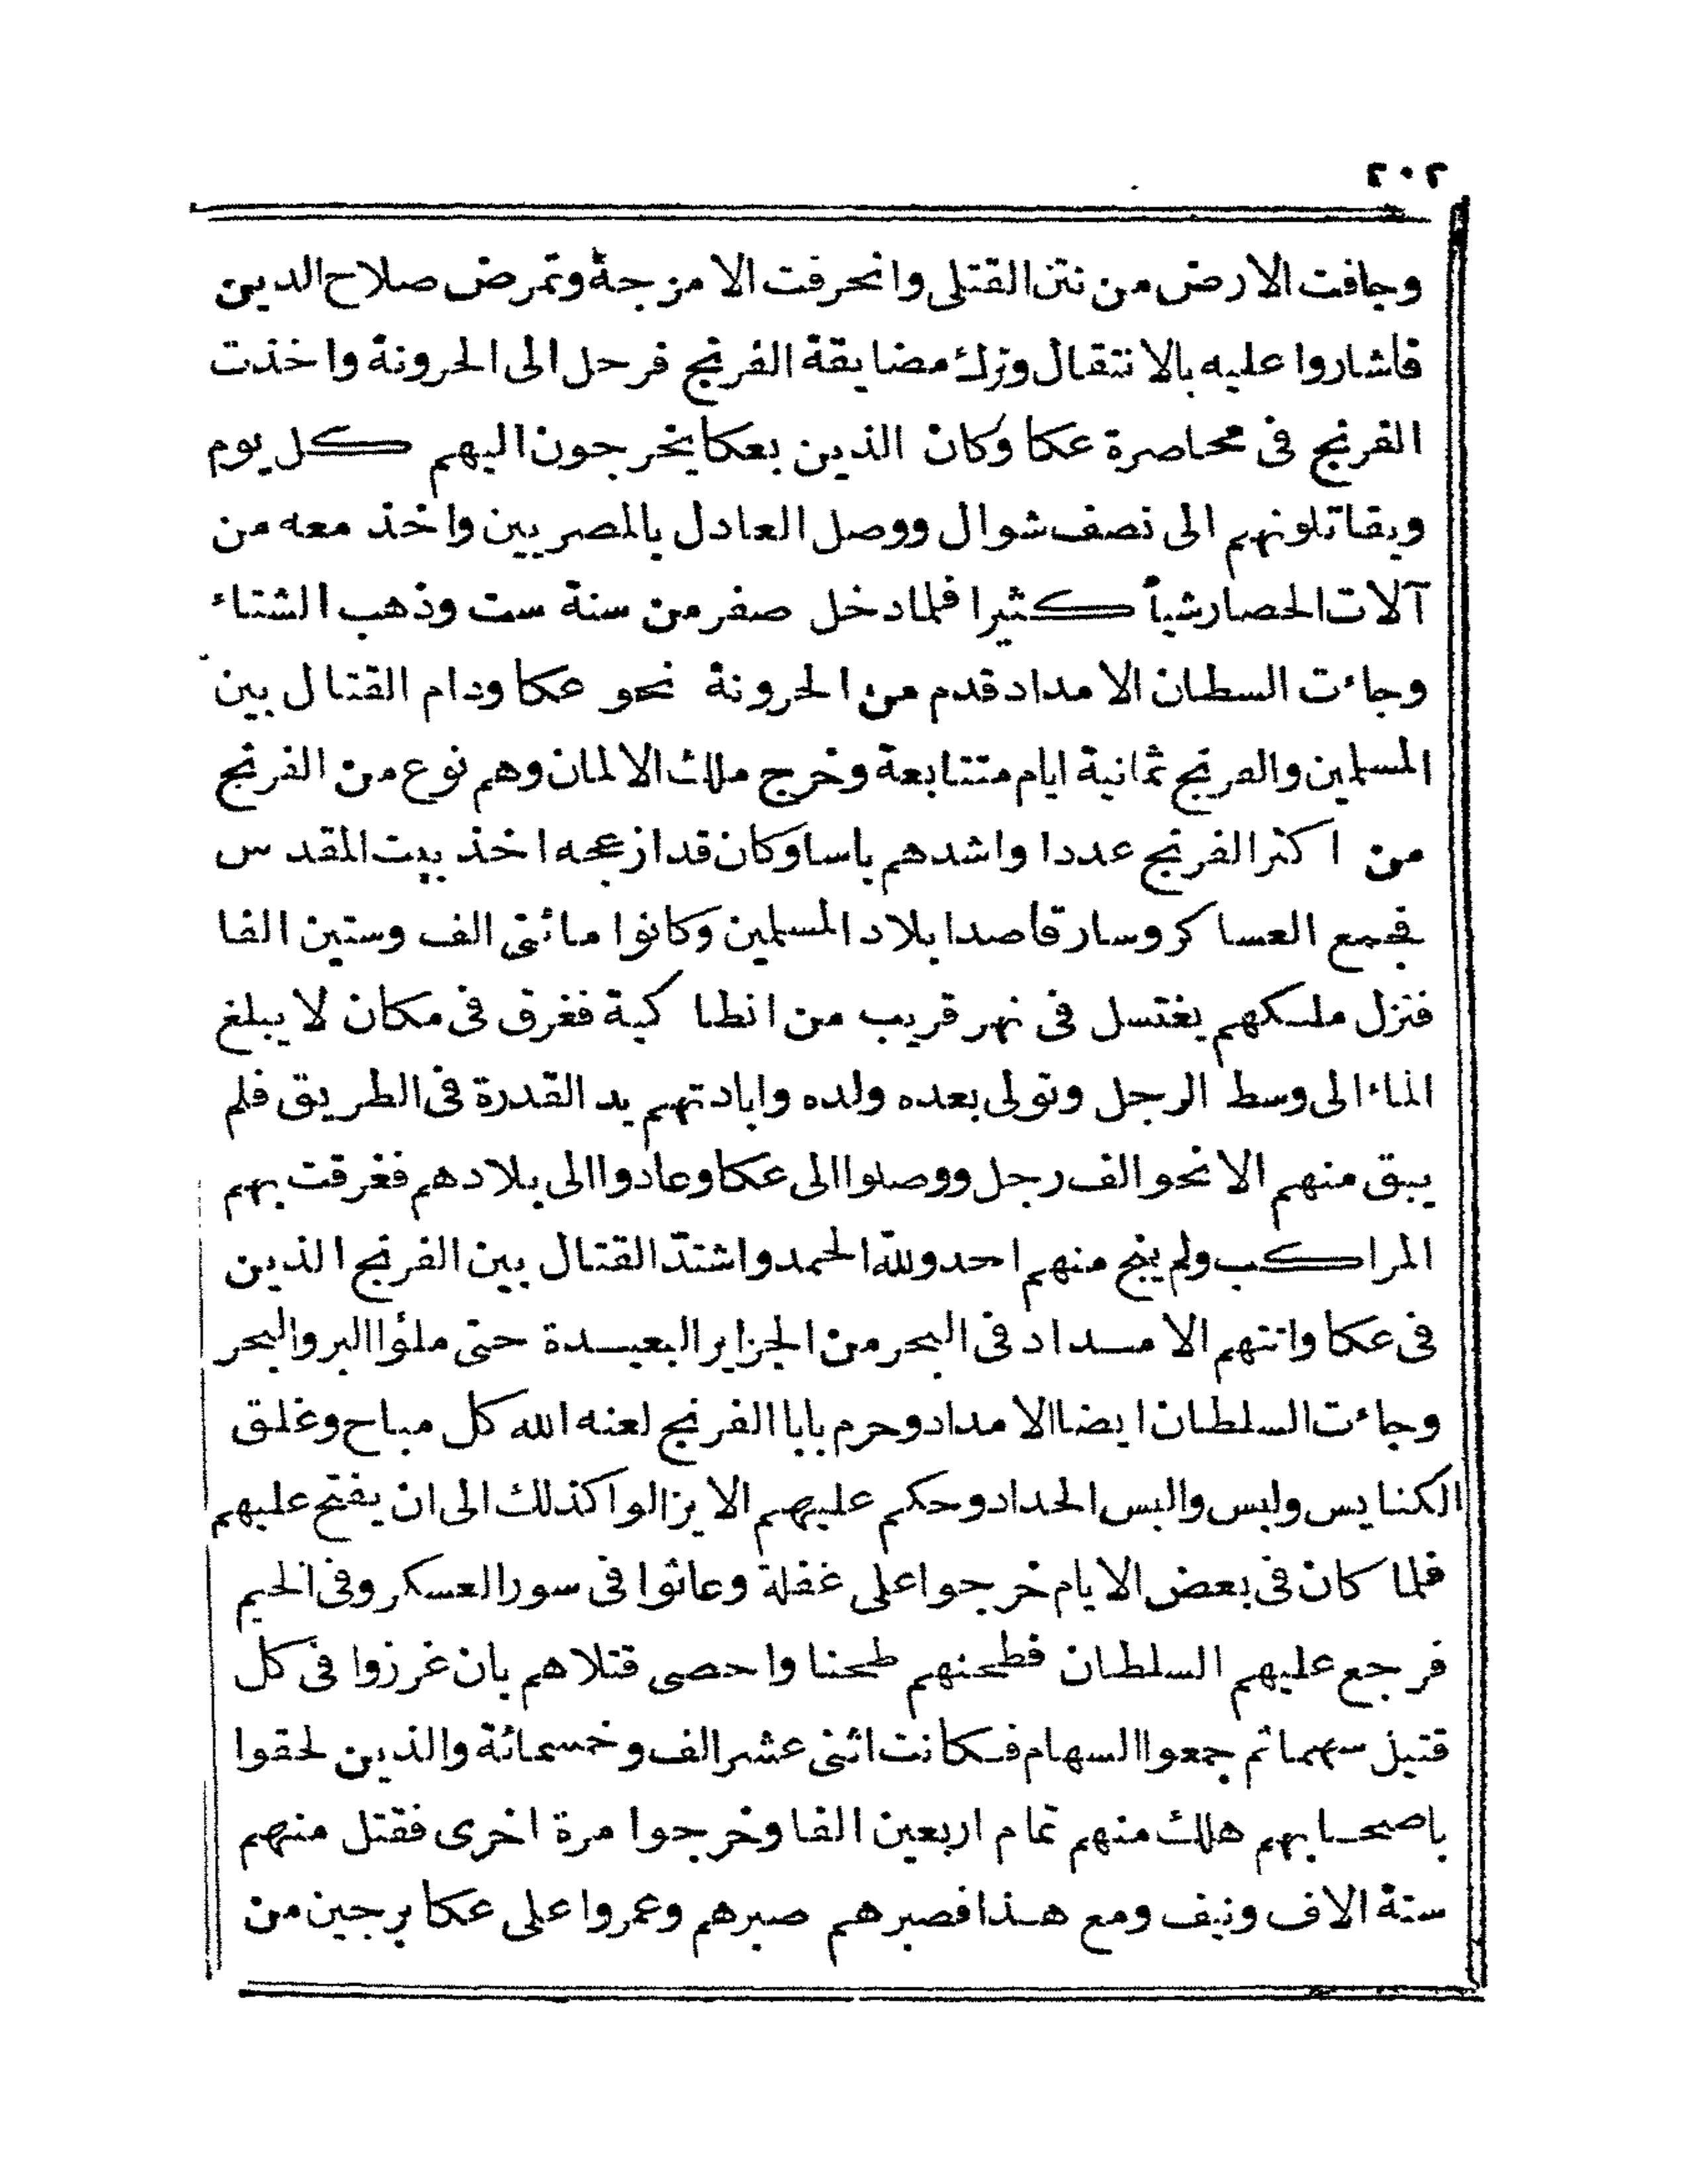 ٢٠٢
وجافت الارض من نتن القتلى وانحرفت الامزجة وتمرض صلاح الدين
فاشاروا عليه بالانتقال وترك مضايقة الفرنج فرحل الى الحرونة واخذت
الفرنج فى محاصرة عكا وكان الذين بعكا يخرجون اليهم كل يوم
ويقاتلونهم الى نصف شوال ووصل العادل بالمصريين واخذ معه من
آلات الحصار شيأ كثيرا فلما دخل صفر من سنة ست وذهب الشتاء
وجاءت السطان الامداد قدم من الحرونة نحو عكا ودام القتال بين
المسلمين والفرنج ثمانية ايام متتابعة وخرج ملك الالمان وهم نوع من الفرنج
من اكثر الفرنج عددا واشدهم باسا وكان قد ازعجه اخذ بيت المقدس
فجمع العساكر وسار قاصدا بلاد المسلمين وكانوا مائتى الف وستين الفا
فنزل ملكهم يغتسل فى نهر قريب من انطاكية فغرق فى مكان لا يبلغ
الماء الى وسط الرجل وتولى بعده ولده وابادتهم يد القدرة فى الطريق فلم
يبق منهم الا نحو الف رجل ووصلوا الى عكا وعادوا الى بلادهم فغرقت بهم
المراكب ولم ينج منهم احد ولله الحمد واشتد القتال بين الفرنج الذين
فى عكا واتتهم الامداد فى البحر من الجزاير البعيدة حتى ملؤا البر والبحر
وجاءت السلطان ايضا الامداد وحرم بابا الفرنج لعنه الله كل مباح وغلق
الكنايس ولبس والبس الحداد وحكم عليهم الا يزالوا كذلك الى ان يفتح عليهم
فلما كان فى بعض الايام خرجوا على غفلة وعاثوا فى سور العسكر وفى الخيم
فرجع عليهم السلطان فطحنهم طحنا واحصى قتلاهم بان غرزوا فى كل
قتيل سهما ثم جمعوا السهام فكانت اثنى عشر الف وخمسمائة والذين لحقوا
باصحابهم هلك منهم تمام اربعين الفا وخرجوا مرة اخرى فقتل منهم
ستة الاف ونيف ومع هذا فصبرهم صبرهم وعمروا على عكا برجين من